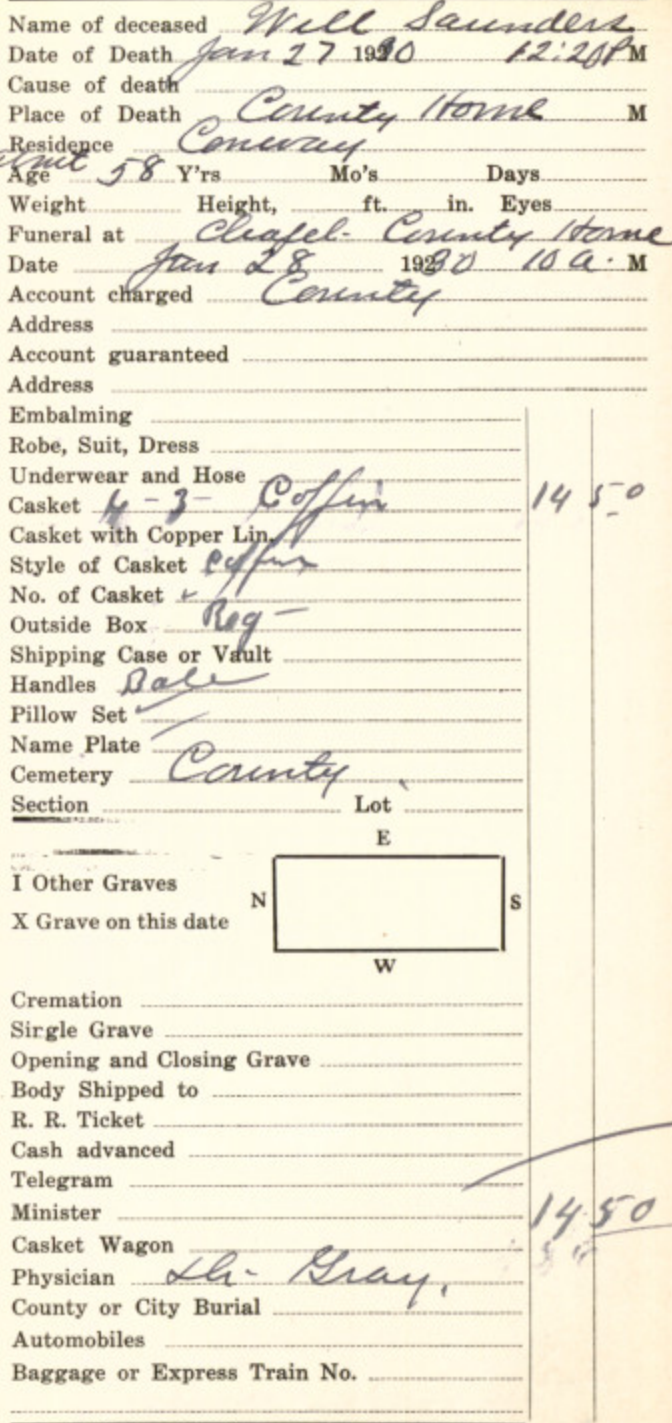 Name of deceased Will Saunders
Date of Death Jan 27 1930 12:20 P M
Cause of death
Place of Death County Home M
Residence Conway
Age 58 Y'rs Mo's Days
Weight Height, ft. in. Eyes
Funeral at Chapel - County Home
Date Jan 28 1930 10 a. M
Account charged County
Address
Account guaranteed
Address
Embalming
Robe, Suit, Dress
Underwear and Hose
Casket 4-3- Coffin 14 50
Casket with Copper Lin.
Style of Casket Coffin
No. of Casket
Outside Box Reg -
Shipping Case or Vault
Handles Bale
Pillow Set
Name Plate
Cemetery County
Section Lot
E
I Other Graves
N S
X Grave on this date
W
Cremation
Single Grave
Opening and Closing Grave
Body Shipped to
R. R. Ticket
Cash advanced
Telegram
Minister 14 50
Casket Wagon
Physician Dr- Gray.
County or City Burial
Automobiles
Baggage or Express Train No.